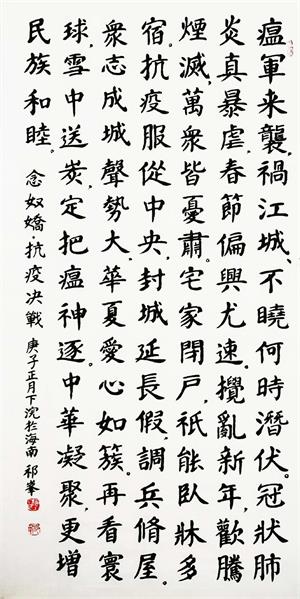 瘟軍来襲,禍江城、不曉何時潛伏。冠狀肺
炎真暴虐,春節偏興尤速。攪亂新年,歡騰
煙滅,萬衆皆憂肅。宅家閉戶,衹能卧牀多
宿。抗疫服從中央,封城延長假,調兵脩屋。
衆志成城聲勢大,華夏愛心如簇。再看寰
球,雪中送炭,定把瘟神逐。中華凝聚,更增
民族和睦。 念奴嬌·抗疫决戰 庚子正月下浣於海南 祁峯